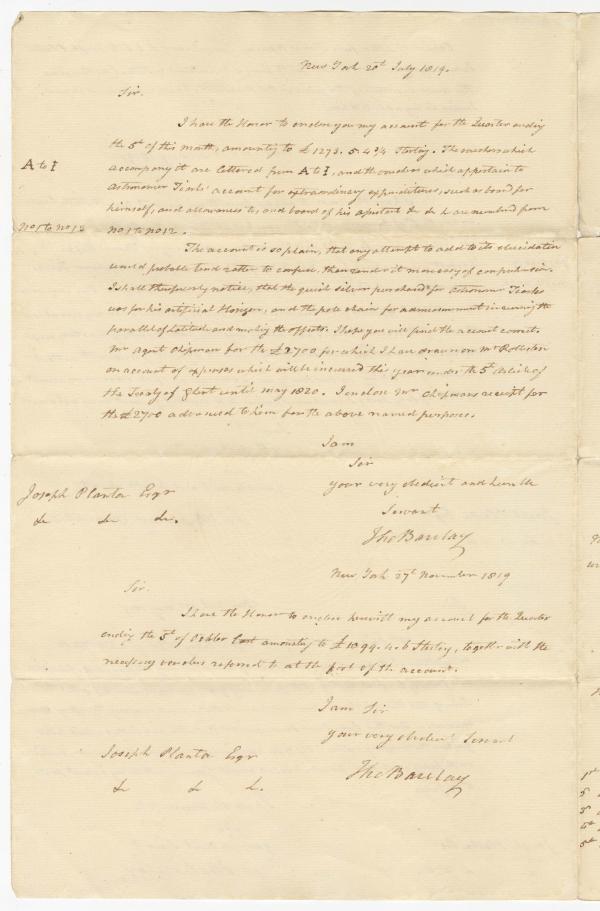 New York 20th July 1819.
Sir.
I have the Honor to enclose you my account for the Quarter ending
the 5th of this month, amounting to £1273. 5. 4¾ Sterling. The vouchers which
A to I
accompany it are lettered from A to I, and the vouchers which appertain to
Astronomer Tiarks' account for extraordinary expenditures, such as board for
himself, and allowances to, and board of his assistant &c &c are numbered from
No 1 to No 12
No 1 to No 12.
The account is so plain, that any attempt to add to its elucidation
would probable tend rather to confuse, than render it more easy of comprehension.
I shall therefore only notice, that the quick silver purchased for Astronomer Tiarks
was for his artificial Horizon, and the pole chain for admeasurement in running the
parallel of Latitude and making the offsets. I hope you will find the account correct.
Mr Agent Chipman for the £2700 for which I have drawn on Mr Rolleston
on account of expenses which will be incurred this year under the 5th Article of
the Treaty of Ghent until May 1820. I enclose Mr Chipmans receipt for
the £2700 advanced to him for the above named purposes.
I am
Sir
your very obedient and humble
Servant
Joseph Planta Esqr
&c &c &c.
Tho Barclay
New York 27th November 1819
Sir.
I have the Honor to enclose herewith my account for the Quarter
ending the 5th of October last amounting to £1099. 4. 6 Sterling, together with the
necessary vouchers referred to at the foot of the account.
I am Sir
your very obedient Servant
Joseph Planta Esqr
&c &c &c.
Tho Barclay